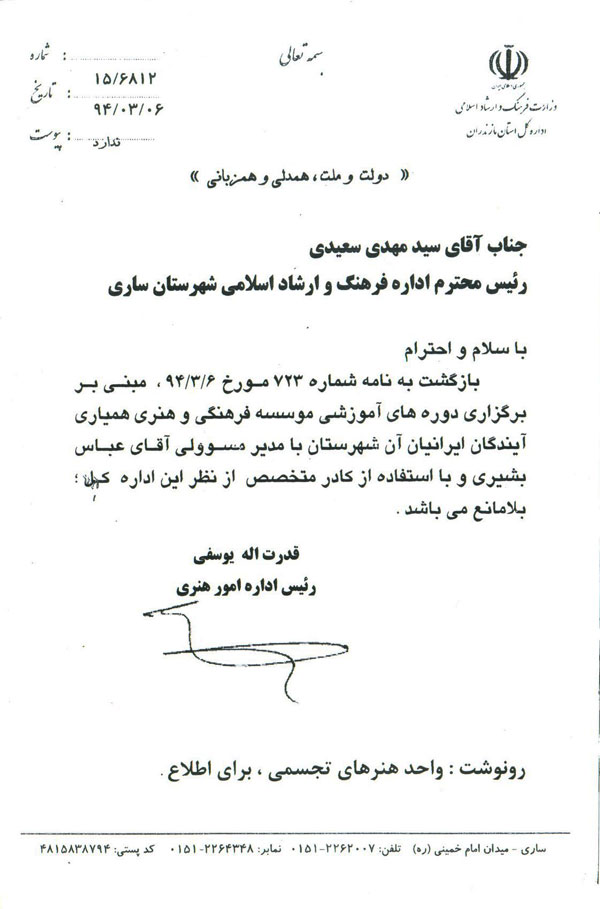 بسمه تعالی
جمهوری اسلامی ایران
وزارت فرهنگ و ارشاد اسلامی
اداره کل استان مازندران
شماره : ۱۵/۶۸۱۲
تاریخ : ۹۴/۰۳/۰۶
پیوست : ندارد
« دولت و ملت، همدلی و همزبانی »
جناب آقای سید مهدی سعیدی
رئیس محترم اداره فرهنگ و ارشاد اسلامی شهرستان ساری
با سلام و احترام
بازگشت به نامه شماره ۷۲۳ مورخ ۹۴/۳/۶ ، مبنی بر
برگزاری دوره های آموزشی موسسه فرهنگی و هنری همیاری
آیندگان ایرانیان آن شهرستان با مدیر مسوولی آقای عباس
بشیری و با استفاده از کادر متخصص از نظر این اداره کل ؛
بلامانع می باشد .
قدرت اله یوسفی
رئیس اداره امور هنری
رونوشت : واحد هنرهای تجسمی ، برای اطلاع .
ساری - میدان امام خمینی (ره) تلفن: ۲۲۶۲۰۰۷-۰۱۵۱ نمابر: ۲۲۶۴۳۴۸-۰۱۵۱ کد پستی: ۴۸۱۵۸۳۸۷۹۴